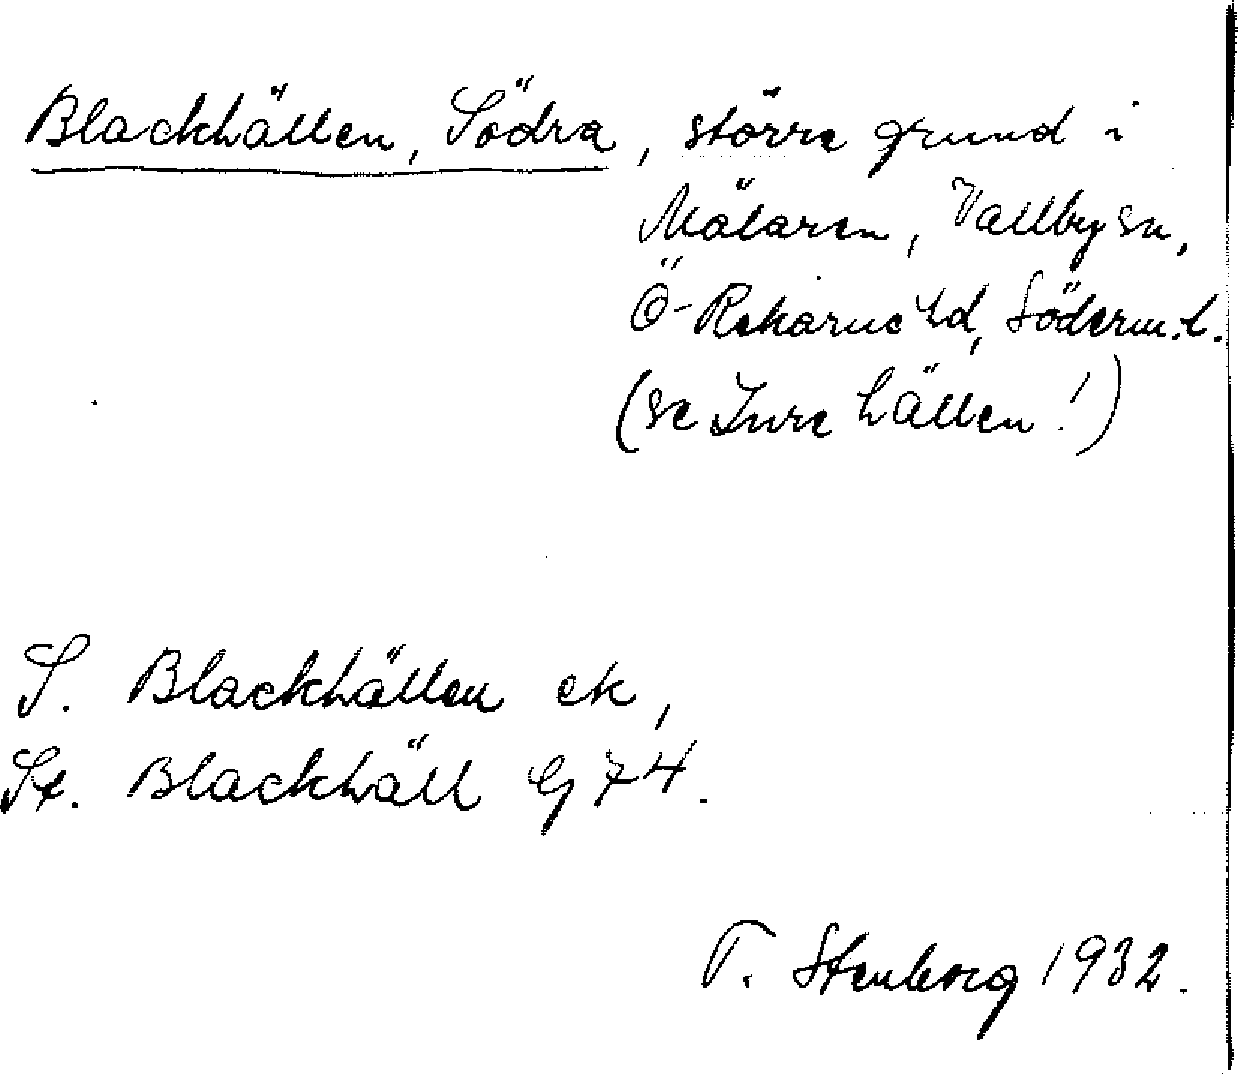 Blackhällen, Södra, större grund i
Mälaren, Vallby sn,
Ö-Rekarne hd, Söderm. l.
(se Inre hällen!)
S. Blackhällen ek,
St. Blackhäll G 74.
T. Stenborg 1932.